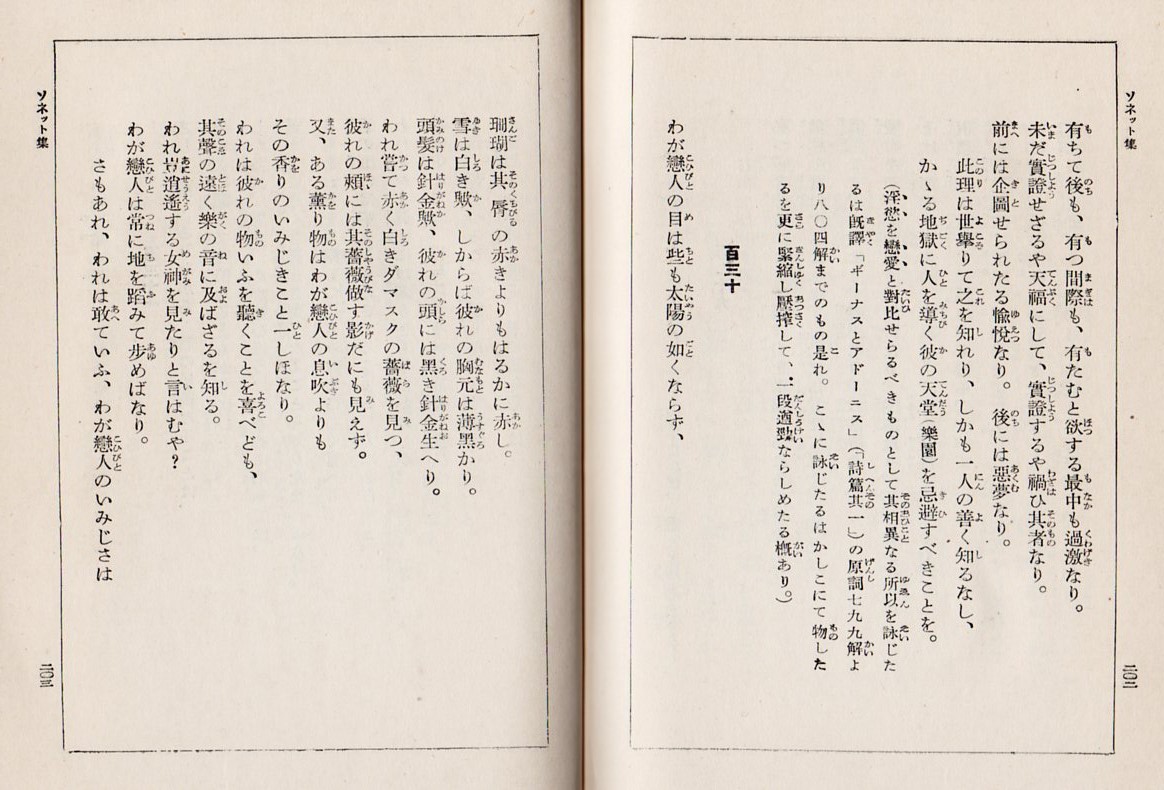 ソネット集
有ちて後も、有つ間際も、有たむと欲する最中も過激なり。
未だ實證せざるや天福にして、實證するや禍ひ其者なり。
前には企圖せられたる愉悅なり。後には惡夢なり。
此理は世擧りて之を知れり、しかも一人の善く知るなし、
かゝる地獄に人を導く彼の天堂(樂園)を忌避すべきことを。
(淫慾を戀愛と對比せらるべきものとして其相異なる所以を詠じた
るは旣譯「ギーナスとアドーニス」(「詩篇其一」)の原詞七九九解よ
り八〇四解までのもの是れ。こゝに詠じたるはかしこにて物した
るを更に緊縮し壓搾して、一段遒勁ならしめたる槪あり。)
百三十
わが戀人の目は些も太陽の如くならず、
二〇二
ソネット集
珊瑚は其脣の赤きよりもはるかに赤し。
雪は白き歟、しからば彼れの胸元は薄黑かり。
頭髮は針金歟、彼れの頭には黑き針金生へり。
われ嘗て赤く白きダマスクの薔薇を見つ、
彼れの頰には其薔薇倣す影だにも見えず。
又、ある薰り物はわが戀人の息吹よりも
その香りのいみじきこと一しほなり。
われは彼れの物いふを聽くことを喜べども、
其聲の遠く樂の音に及ばざるを知る。
われ豈逍遙する女神を見たりと言はむや?
わが戀人は常に地を蹈みて步めばなり。
さもあれ、われは敢ていふ、わが戀人のいみじさは
二〇三